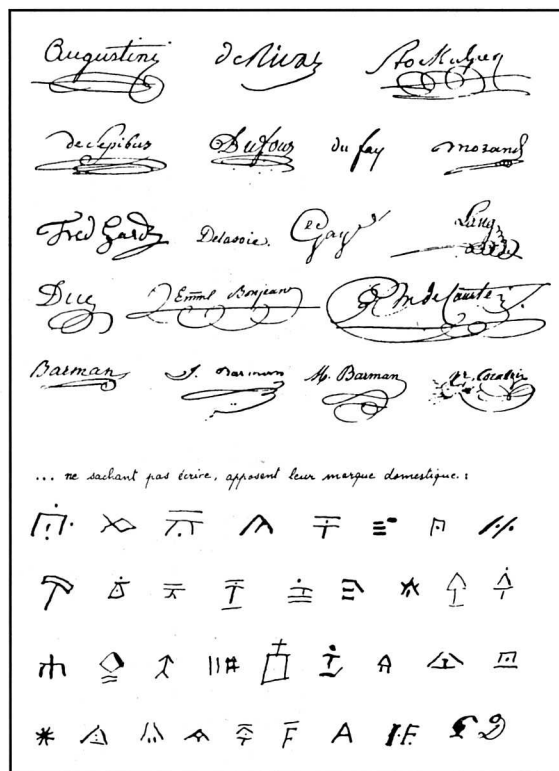 Augustini de Rivaz
de Sepibus Dufour du fay Morand
Fred Gard Delasoie. Gay Lang
Duc Emml Bonjean
Barman J. Barman M. Barman
... ne sachant pas écrire, apposent leur marque domestique.:
F A I.F. D